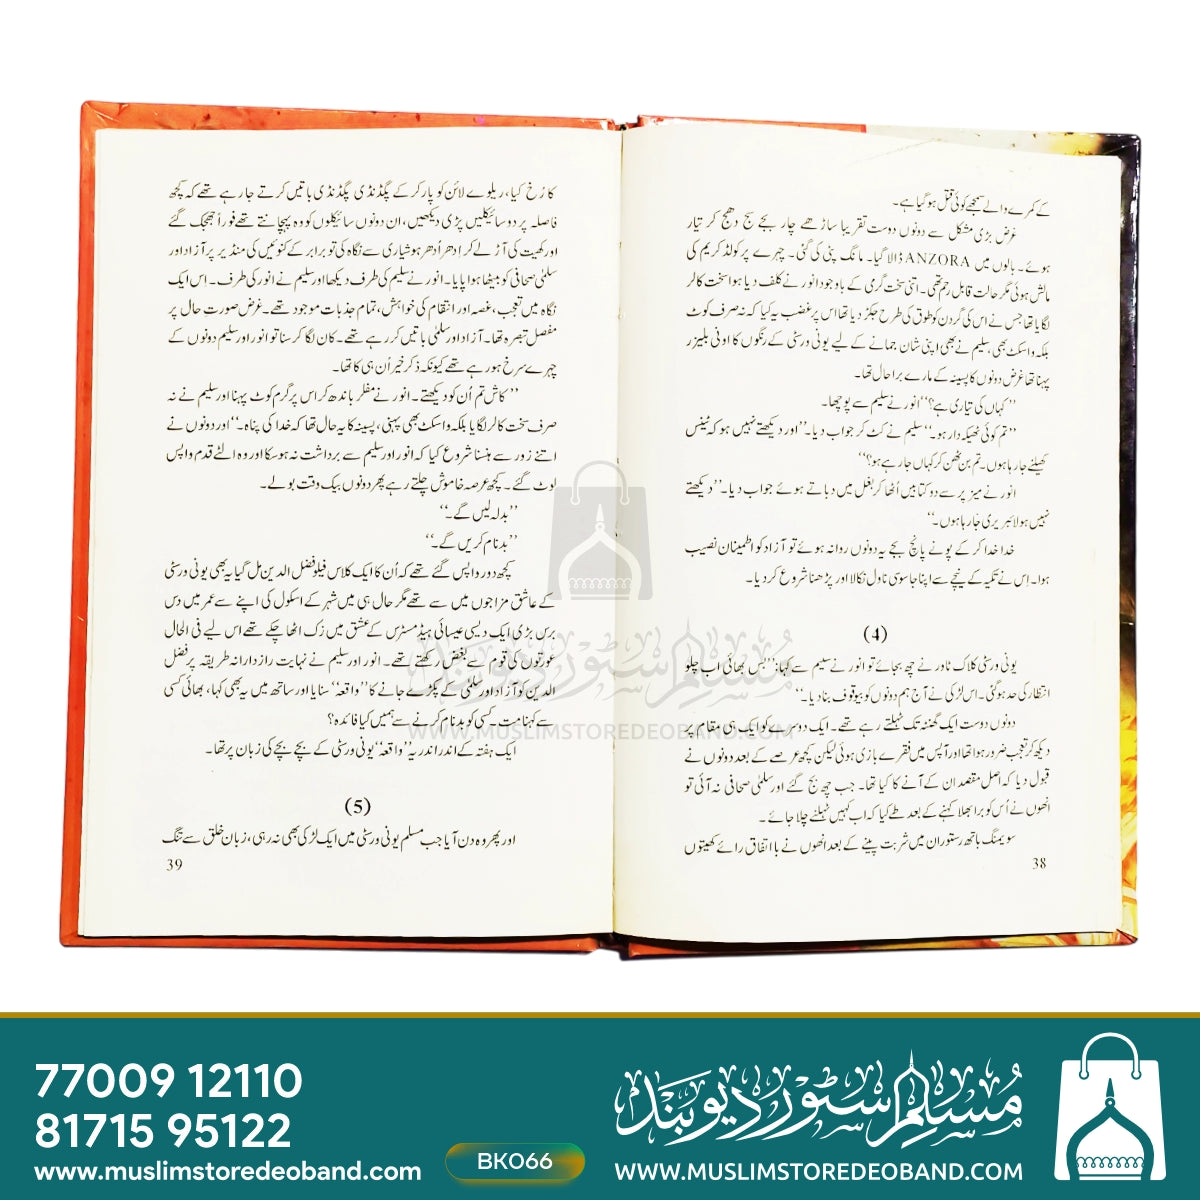 کے کمرے والے سمجھے کوئی قتل ہو گیا ہے۔
غرض بڑی مشکل سے دونوں دوست تقریباً ساڑھے چار بجے سج دھج کر تیار
ہوئے۔ بالوں میں ANZORA ڈالا گیا۔ مانگ پٹی کی گئی۔ چہرے پر کولڈ کریم کی
مالش ہوئی مگر حالت قابل رحم تھی۔ اتنی سخت گرمی کے باوجود انور نے کلف دیا ہوا سخت کالر
لگایا تھا جس نے اس کی گردن کو طوق کی طرح جکڑ دیا تھا اس پر غضب یہ کیا کہ نہ صرف کوٹ
بلکہ واسکٹ بھی، سلیم نے بھی اپنی شان جمانے کے لیے یونی ورسٹی کے رنگوں کا اونی بلیزر
پہنا تھا غرض دونوں کا پسینہ کے مارے برا حال تھا۔
”کہاں کی تیاری ہے؟“ انور نے سلیم سے پوچھا۔
”تم کوئی ٹھیکہ دار ہو۔“ سلیم نے کٹ کر جواب دیا۔ ”اور دیکھتے نہیں ہو کہ ٹینس
کھیلنے جا رہا ہوں۔ تم بن ٹھن کر کہاں جا رہے ہو؟“
انور نے میز پر سے دو کتابیں اُٹھا کر بغل میں دباتے ہوئے جواب دیا۔ ”دیکھتے
نہیں ہو لائبریری جا رہا ہوں۔“
خدا خدا کر کے پونے پانچ بجے یہ دونوں روانہ ہوئے تو آزاد کو اطمینان نصیب
ہوا۔ اِس نے تکیہ کے نیچے سے اپنا جاسوسی ناول نکالا اور پڑھنا شروع کر دیا۔
(4)
یونی ورسٹی کلاک ٹاور نے چھ بجائے تو انور نے سلیم سے کہا: ”بس بھائی اب چلو
انتظار کی حد ہو گئی۔ اس لڑکی نے آج ہم دونوں کو بیوقوف بنا دیا۔“
دونوں دوست ایک گھنٹہ تک ٹہلتے رہے تھے۔ ایک دوسرے کو ایک ہی مقام پر
دیکھ کر تعجب ضرور ہوا تھا اور آپس میں فقرے بازی ہوئی لیکن کچھ عرصے کے بعد دونوں نے
قبول دیا کہ اصل مقصد ان کے آنے کا کیا تھا۔ جب چھ بج گئے اور سلمٰی صحافی نہ آئی تو
اُنھوں نے اُس کو برا بھلا کہنے کے بعد طے کیا کہ اب کہیں ٹہلنے چلا جائے۔
سویمنگ باتھ رستوران میں شربت پینے کے بعد انھوں نے با اتفاق رائے کھیتوں
38
کا رُخ کیا، ریلوے لائن کو پار کر کے پگڈنڈی پگڈنڈی باتیں کرتے جا رہے تھے کہ کچھ
فاصلہ پر دو سائیکلیں پڑی دیکھیں، ان دونوں سائیکلوں کو وہ پہچانتے تھے فوراً جھجک گئے
اور کھیت کی آڑ لے کر اِدھر اُدھر ہوشیاری سے نگاہ کی تو برابر کے کنوئیں کی منڈیر پر آزاد اور
سلمٰی صحافی کو بیٹھا ہوا پایا۔ انور نے سلیم کی طرف دیکھا اور سلیم نے انور کی طرف۔ اِس ایک
نگاہ میں تعجب، غصہ اور انتقام کی خواہش، تمام جذبات موجود تھے۔ غرض صورتِ حال پر
مفصل تبصرہ تھا۔ آزاد اور سلمٰی باتیں کر رہے تھے۔ کان لگا کر سنا تو انور اور سلیم دونوں کے
چہرے سرخ ہو رہے تھے کیونکہ ذکر خیر اُن ہی کا تھا۔
”کاش تم اُن کو دیکھتے۔ انور نے مفلر باندھ کر اس پر گرم کوٹ پہنا اور سلیم نے نہ
صرف سخت کالر لگایا بلکہ واسکٹ بھی پہنی، پسینہ کا یہ حال تھا کہ خدا کی پناہ۔“ اور دونوں نے
اتنے زور سے ہنسنا شروع کیا کہ انور اور سلیم سے برداشت نہ ہو سکا اور وہ الٹے قدم واپس
لوٹ گئے۔ کچھ عرصہ خاموش چلتے رہے پھر دونوں بیک وقت بولے۔
”بدلہ لیں گے۔“
”بدنام کریں گے۔“
کچھ دور واپس گئے تھے کہ اُن کا ایک کلاس فیلو فضل الدین مل گیا یہ بھی یونی ورسٹی
کے عاشق مزاجوں میں سے تھے مگر حال ہی میں شہر کے اسکول کی اپنے سے عمر میں دس
برس بڑی ایک دیسی عیسائی ہیڈ مسٹرس کے عشق میں زک اٹھا چکے تھے اس لیے فی الحال
عورتوں کی قوم سے بغض رکھتے تھے۔ انور اور سلیم نے نہایت رازدارانہ طریقہ پر فضل
الدین کو آزاد اور سلمٰی کے پکڑے جانے کا ”واقعہ“ سنایا اور ساتھ میں یہ بھی کہا، بھائی کسی
سے کہنا مت۔ کسی کو بدنام کرنے سے ہمیں کیا فائدہ؟
ایک ہفتہ کے اندر اندر یہ ”واقعہ“ یونی ورسٹی کے بچے بچے کی زبان پر تھا۔
(5)
اور پھر وہ دن آیا جب مسلم یونی ورسٹی میں ایک لڑکی بھی نہ رہی، زبان خلق سے تنگ
39
مسلم سٹور دیوبند
WWW.MUSLIMSTOREDEOBAND.COM
77009 12110
81715 95122
www.muslimstoredeoband.com
BK066
مُسلم سٹور دیوبند
www.MUSLIMSTOREDEOBAND.COM